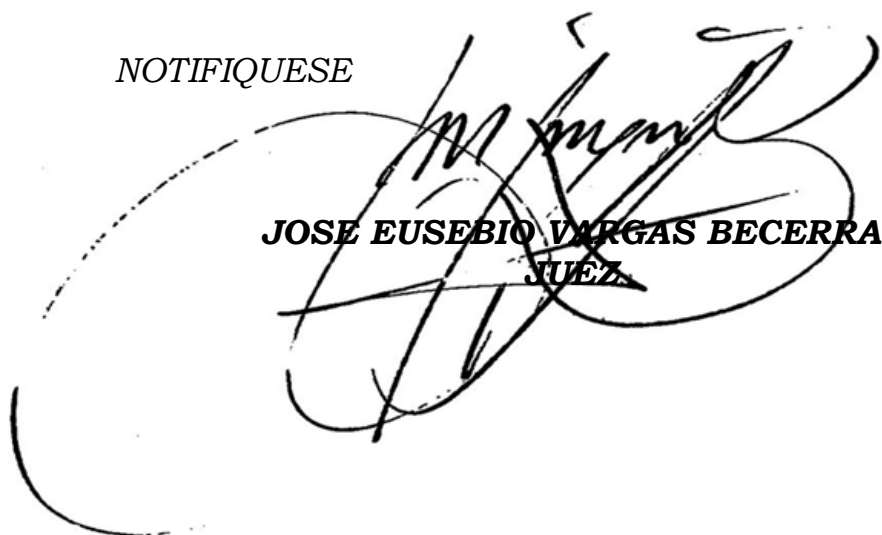 NOTIFIQUESE
JOSE EUSEBIO VARGAS BECERRA
JUEZ